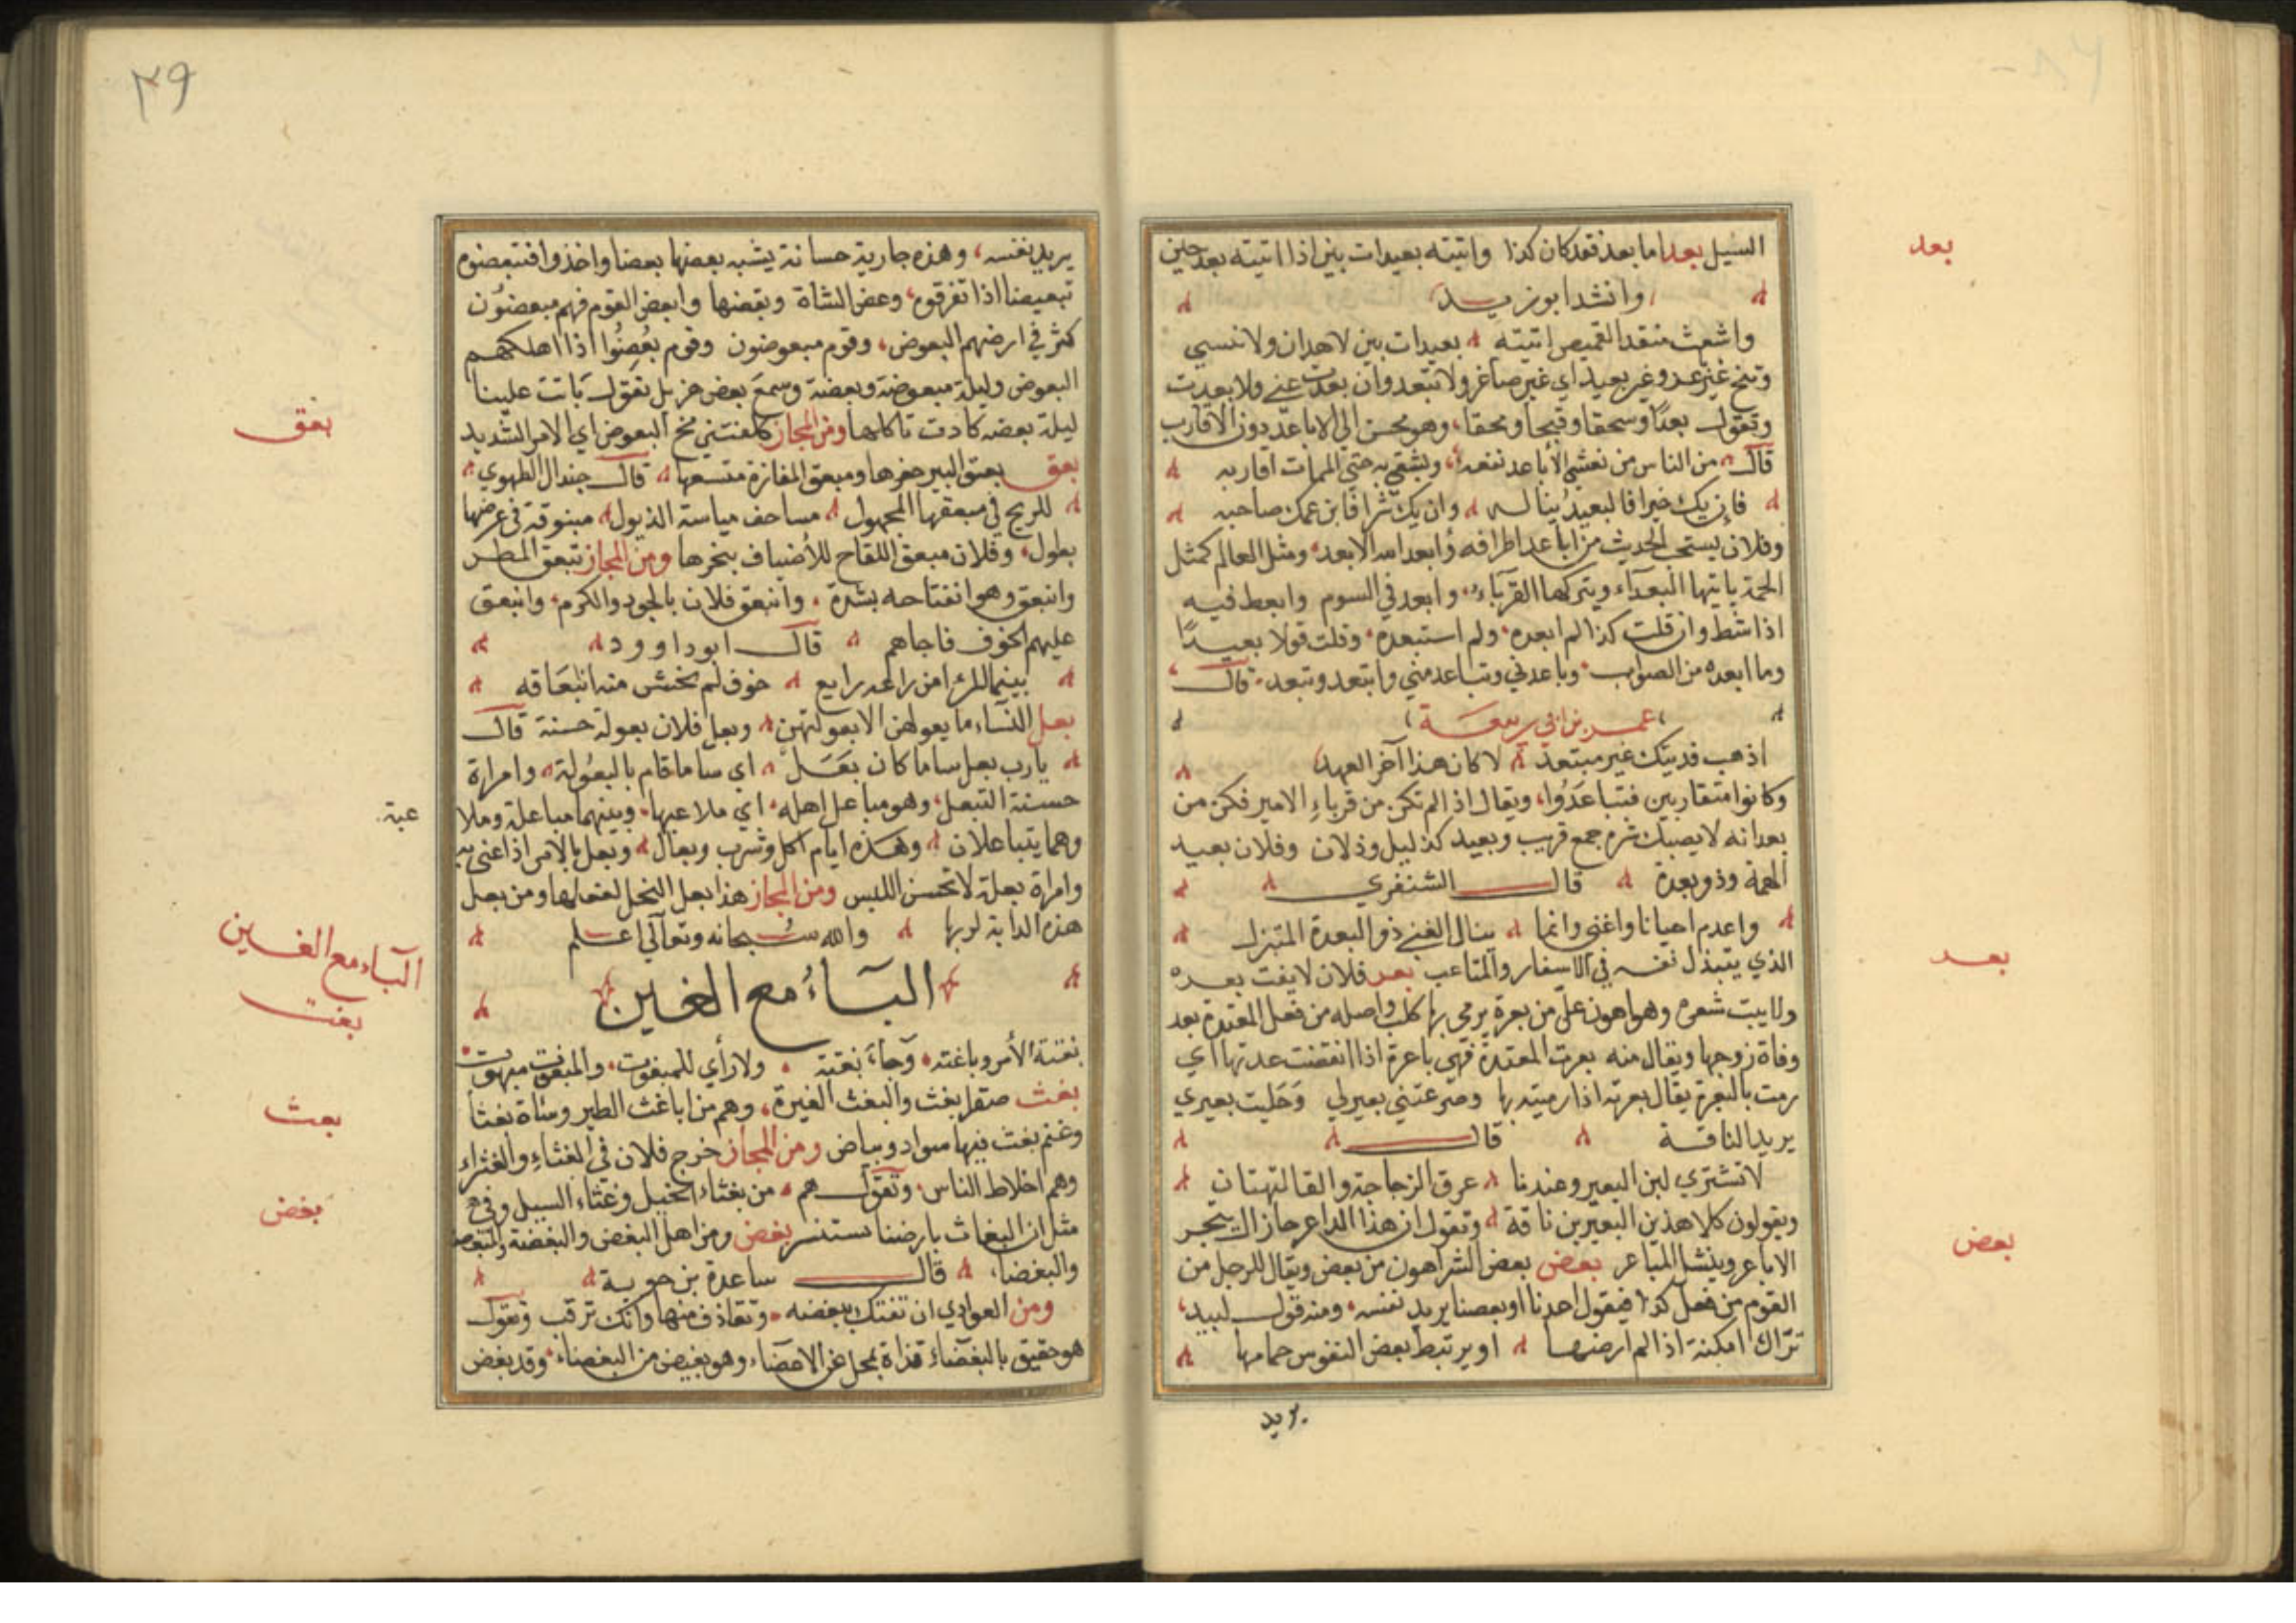 بعد
السيل بعد اما بعد فقد كان كذا واتيته بعيدات بين اذا اتيته بعد حين
وانشد ابو زيد
واشعث منقد القميص اتيته بعيدات بين لا هدان ولا نسي
وتنح غير بعد وغير بعيد اي غير صاغر ولا تبعد وان بعدت عني ولا بعدت
وتقول بعدًا وسحقا وقبحا ومحقا، وهو محسن الي الاباعد دون الاقارب
قال من الناس من تغشي الأباعد نفعه، ويشقي به حتي الممات اقاربه
فإن يك خيرا فالبعيد يناله وان يك شرا فابن عمك صاحبه
وفلان يستحب الحديث من اباعد اطرافه وأبعد الله الابعد ومثل العالم كمثل
الحمة ياتيها البعدآء ويتركها القربآء، وابعد في السوم وابعط فيه
اذا شط وان قلت كذا لم ابعده، ولم استبعده، وقلت قولا بعيدًا
وما ابعده من الصواب وباعدني وتباعد مني وابتعد وتبعد قال
عمر بن ابي ربيعة
اذهب فديتك غير مبتعد لا كان هذا آخر العهد
وكانوا متقاربين فتباعَدُوا، ويقال اذا لم تكن من قرباءِ الامير فكن من
بعدانه لا يصبك شره جمع قريب وبعيد كذليل وذلان وفلان بعيد
الهمة وذو بعدة قال الشنفري
واعدم احيانا واغني وانما ينال الغني ذو البعدة المتبذل
الذي يتبذل نفسه في الاسفار والمتاعب بعر فلان لا يفت بعره
بعر
ولا يبت شعره وهو اهون علي من بعرة يرمي بها كلب واصله من فعل المعتدة بعد
وفاة زوجها ويقال منه بعرت المعتدة فهي باعرة اذا انقضت عدتها اي
رمت بالبعرة يقال بعرته اذا رميته بها وصرعتني بعيرلي وَحَلبت بعيري
يريد الناقة قال
لا تشتري لبن البعير وعندنا عرق الزجاجة والقا لتهتان
ويقولون كلا هذين البعيرين ناقة وتقول ان هذا الداعر ما زال ينحر
الاباعر وينشل المباعر بعض بعض الشر اهون من بعض ويقال للرجل من
بعض
القوم من فعل كذا فيقول احدنا او بعضنا يريد نفسه، ومنه قول لبيد،
ترّاك امكنة اذا لم ارضها او يرتبط بعض النفوس حمامها
يريد
٣٩
يريد نفسه، وهذه جارية حسانة يشبه بعضها بعضا واخذوا فتبعضوه
تبعيضا اذا تفرقوه، وعض الشاة وبعضها وابعض القوم فهم مبعضون
كثر في ارضهم البعوض، وقوم مبعوضون وقوم بُعِضُوا اذا اهلكهم
البعوض وليلة مبعوضة وبعضة وسمع بعض هزيل تقول باتت علينا
ليلة بعضه كادت تاكلها ومن المجاز كلفتني مخ البعوض اي الامر الشديد
بعق
بعق بعق البير حفرها ومبعق المفازة متسعها قال جندل الطهوي
للريح في مبعقها المجهول مساحف مياسة الذيول مبنوقة في عرضها
بطول، وفلان مبعق اللقاح للأضياف ينحرها ومن المجاز تبعق المطر
وانبعق وهو انفتاحه بشدة، وانبعق فلان بالجود والكرم، وانبعق
عليهم الخوف فاجاهم قال ابو داوود
بينما المرء امن راعه رايع خوف لم يخش منه انبعَاقه
بعل النسآء ما يعولهن الا بعولتهن وبعل فلان بعولة حسنة قال
يا رب بعل سا ما كان بَعَل اي سا ما قام بالبعُولة وامراة
حسنة التبعل، وهو مباعل اهله اي ملاعبها، وبينهما مباعلة وملا
عبة
وهما يتباعلان وهذه ايام اكل وشرب وبعال وبعل بالامر اذا عني به
وامراة بعلة لا تحسن اللبس ومن المجاز هذا بعل النخل لفحلها ومن بعل
هذه الدابة لربها والله سُبحانه وتعالي اعلم
البَاءُ مع الغين
البآء مع الغين
بغت
بغتة الأمر وباغته وجاءَ بغتة ولا رأي للمبغوت، والمبغوت مبهوت
بغث
بغث صقر ابغث والبغث الغبرة، وهم من اباغث الطير وشاة بغثا
وغنم بغث فيها سواد وبياض ومن المجاز خرج فلان في البغثاءِ والغثراء
وهم اخلاط الناس، وتقول هم من بغثاء الخيل وغثاء السيل وفي
مثل ان البغاث بارضنا يستنسر بغض ومن اهل البغض والبغضة والتبغض
بغض
والبغضا، قال ساعدة بن جوية
ومن العوادي ان تفتك ببغضه وتقاذف منها وانك ترقب وتقول
هو حقيق بالبغضاءَ قذاة يجل عن الاغضاء، وهو بغيض من البغضاء، وقد بغض